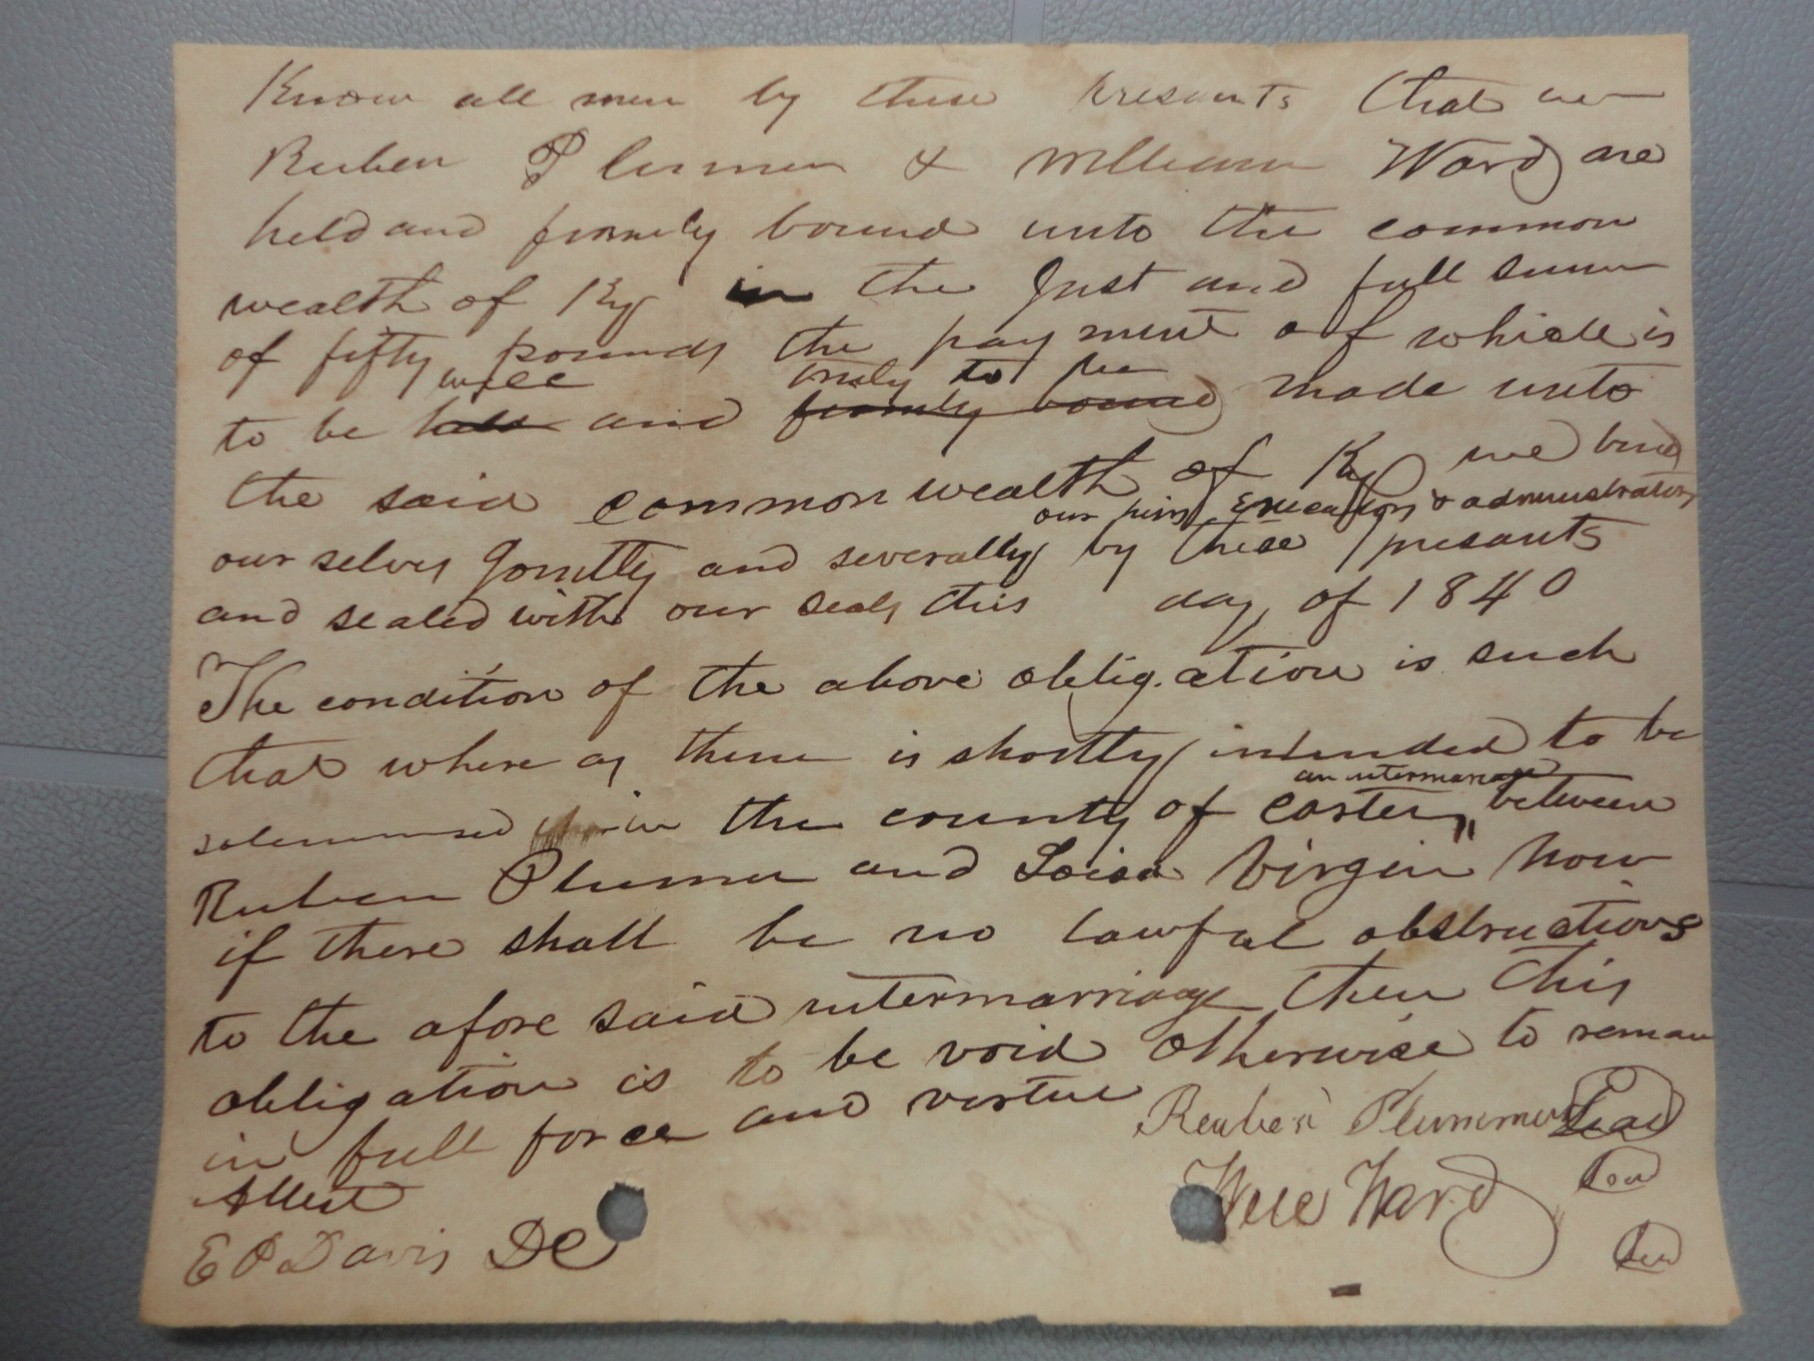 Know all men by these presents that we
Reuben Plummer & William Ward are
held and firmely bound unto the common
wealth of Ky in the Just and full sum
of fifty pounds the payment of which is
well truly to be
to be held and firmly bound made unto
the said commonwealth of Ky we bind
our heirs Executors & administrators
our selves Jointly and severally by these presants
and sealed with our seals this day of 1840
The condition of the above obligation is such
that where as there is shortly intended to be
an intermariage
solemnised in the county of Carter " between
Reuben Plumer and Loisa Virgin Now
if there shall be no lawful obstructions
to the afore said intermarriage then this
obligation is to be void otherwise to remain
in full force and virtue
Reuben Plummer Seal
Attest
Will Ward Seal
E P Davis DC
Seal